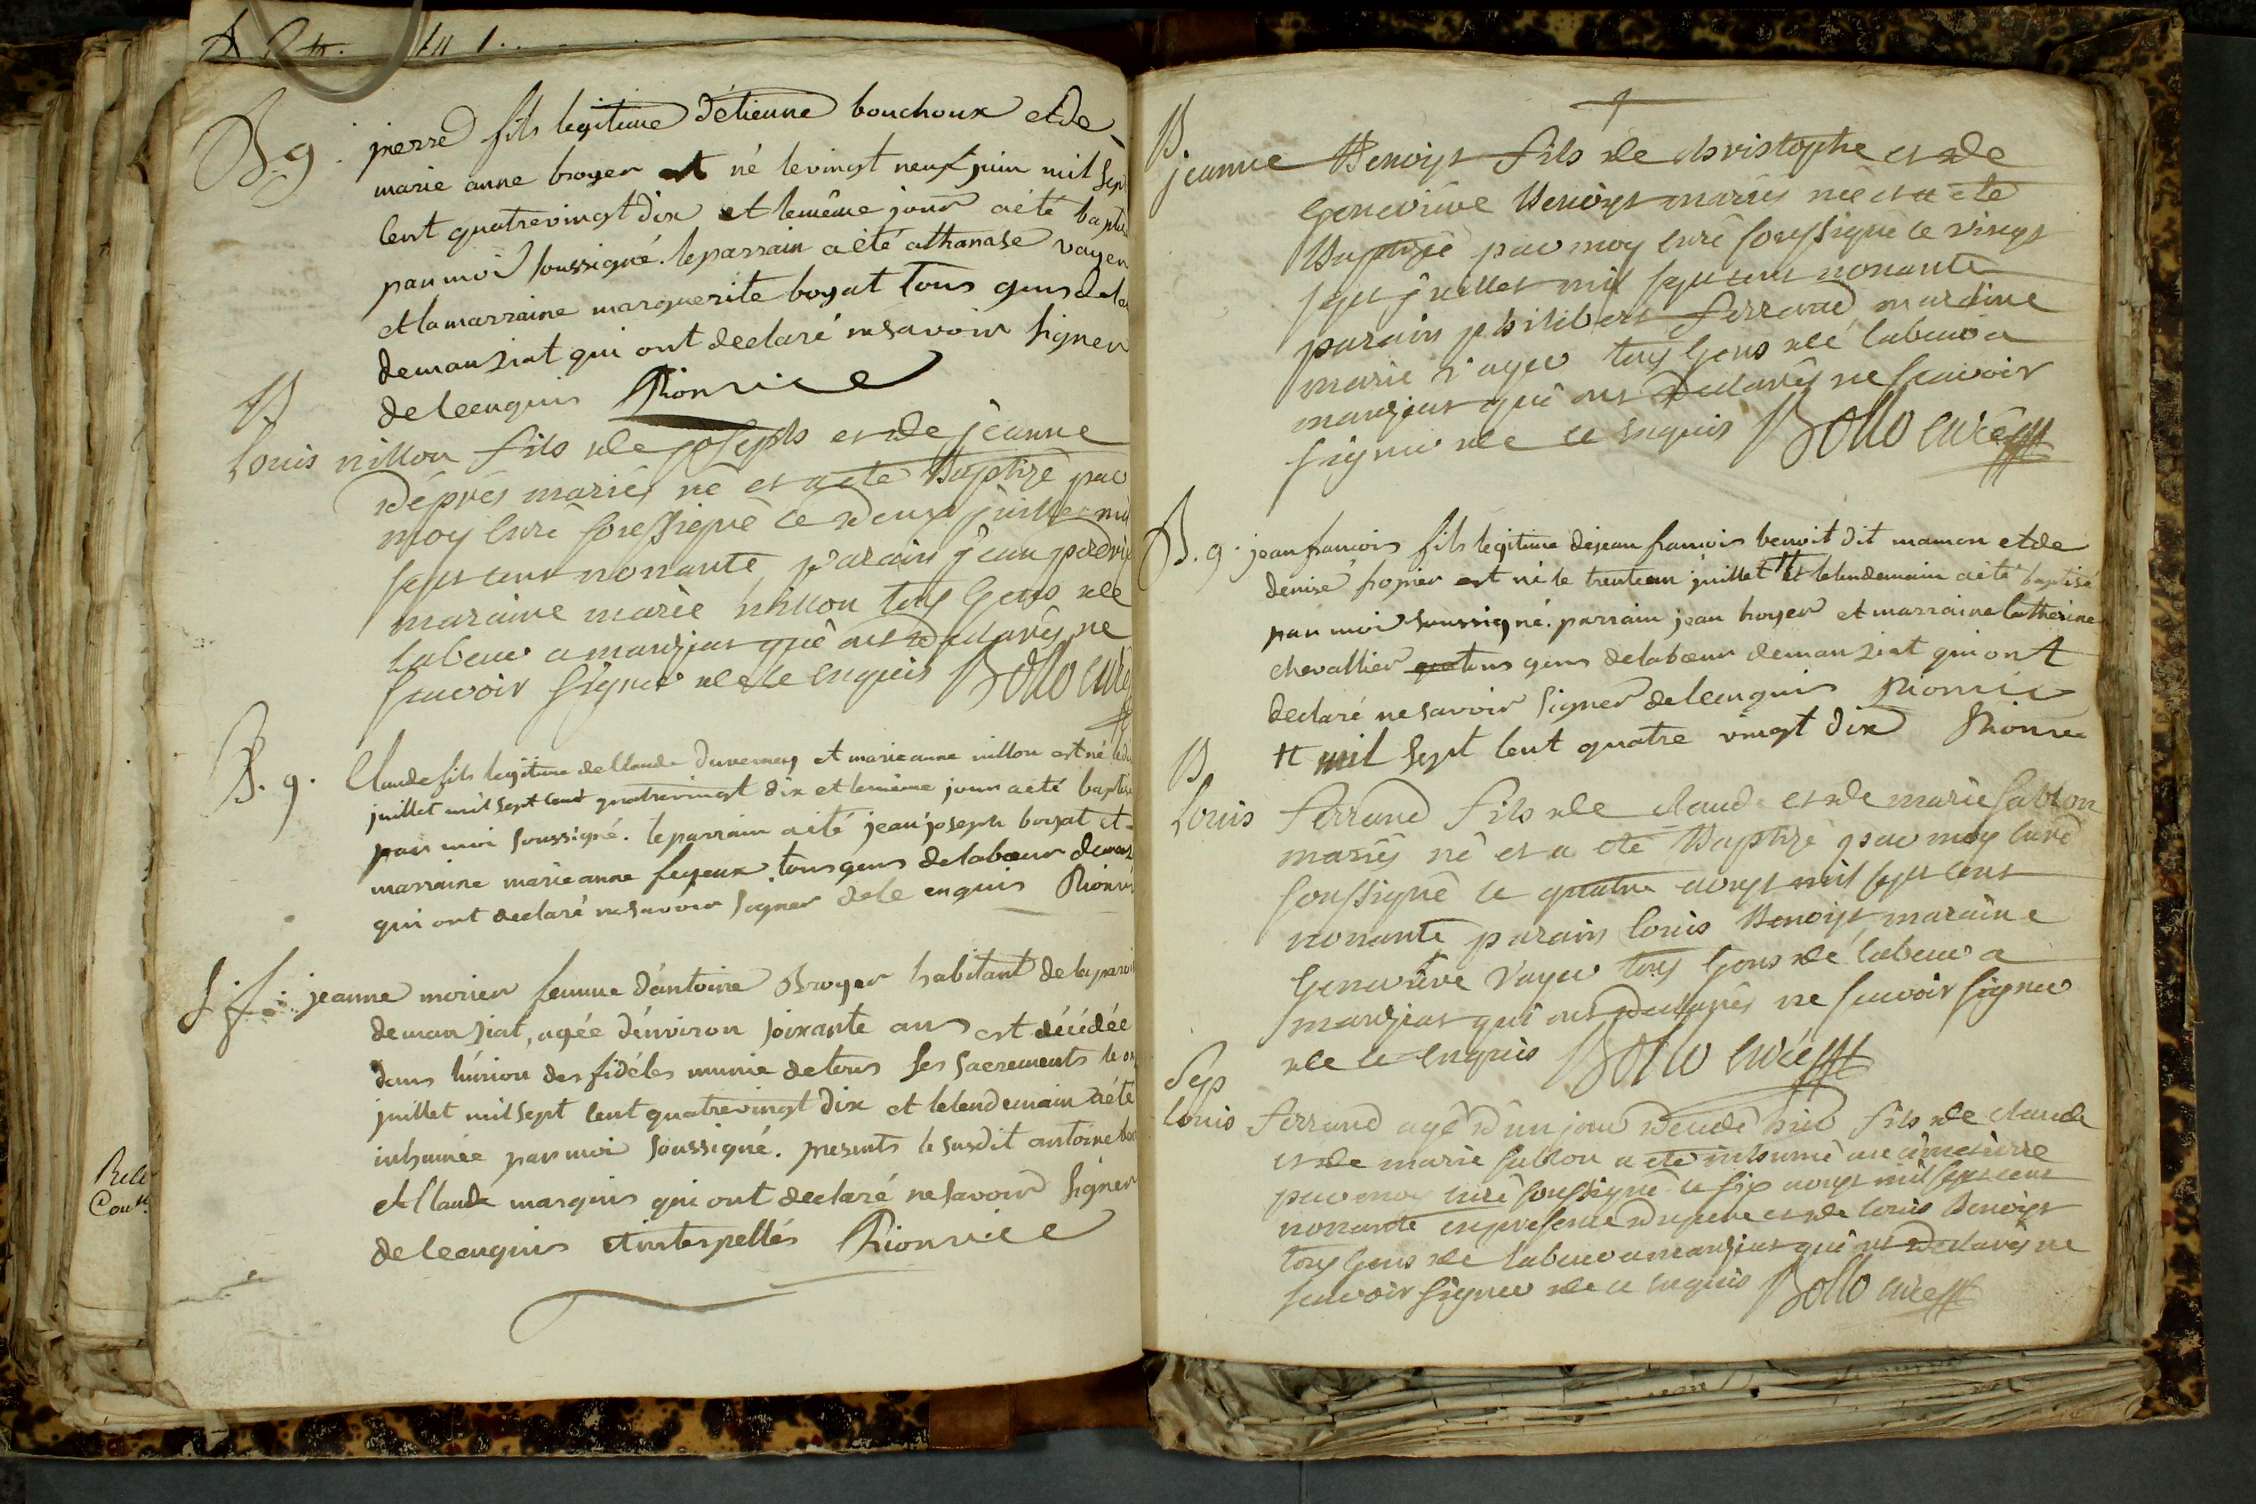 B. g. pierre fils legitime d'étienne bouchoux et de
marie anne broyer est né le vingt neuf juin mil sept
cent quatrevingt dix et le même jour a été baptisé
par moi soussigné. le parrain a été athanase vayer
et la marraine marguerite boyat tous gens de la
demanziat qui ont declaré ne savoir signer
de ce enquis Rion vice
B
Louis nillon fils de joseph et de jeanne
déprés mariés né et a été Baptizé par
moy curé soussigné le deux juillet mil
sept cent nonante parain jean perdrix
maraine marie nillon tous gens de
labeur a manziat qui ont declarés ne
scavoir signer de ce enquis Bollo curé
B. g. Claude fils legitime de Claude Duvernay et marie anne nillon est né le dix
juillet mil sept cent quatrevingt dix et le même jour a été baptisé
par moi soussigné. le parrain a été jean joseph boyat et
marraine marie anne feyeux tous gens de labœur demanz
qui ont declaré ne savoir signer de ce enquis Rion vi
S. f. jeanne morier femme d'antoine Broyer habitant de la paroi
de manziat, agée d'environ soixante ans est décédée
dans l'union des fidéles munie de tous ses sacrements le on
juillet mil sept cent quatrevingt dix et le lendemain a été
inhumée par moi soussigné. presents le susdit antoine bro
et Claude marguin qui ont declaré ne savoir signer
de ce enquis et interpellés Rion vice
Rele
B
jeanne Benoist fils de christophe et de
Genevieve Benoist mariés née et a été
Baptizée par moy curé soussigné le vingt
sept juillet mil sept cent nonante
parain philibert ferrand maraine
marie vayer tous gens de labeur a
manziat qui ont declarés ne scavoir
signer de ce enquis Bollo curé
B. g. jean francois fils legitime de jean francois benoit dit maman et de
denise fropier est né le trente un juillet # et le lendemain a été baptisé
par moi soussigné. parrain jean broyer et marraine Catherine
chevallier tous gens de labœur demanziat qui ont
declaré ne savoir signer de ce enquis Rion vice
# mil sept cent quatre vingt dix Rion vi
B
Louis ferrand fils de claude et de marie sablon
mariés né et a été Baptizé par moy curé
soussigné le quatre aoust mil sept cent
nonante parain Louis Benoist maraine
Genevieve Vayer tous gens de labeur a
manziat qui ont declarés ne scavoir signer
de ce enquis Bollo curé
Sep
Louis ferrand agé d'un jour decedé hier fils de claude
et de marie sablon a été inhumé au cimetierre
par moy curé soussigné le six aoust mil sept cent
nonante en presence du pere et de Louis Benoist
tous gens de labeur a manziat qui ont declarés ne
scavoir signer de ce enquis Bollo curé